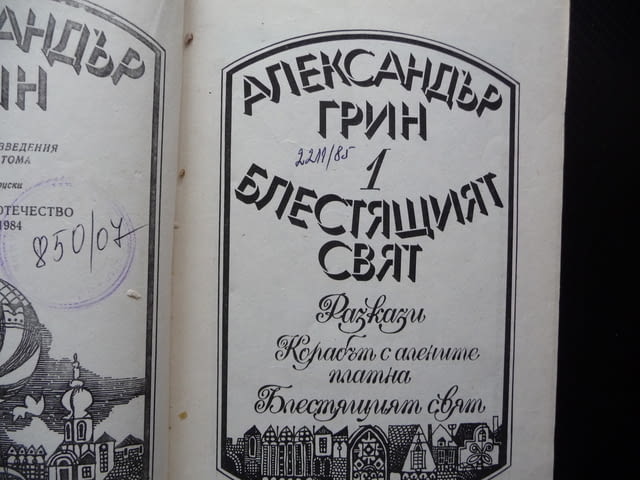 АНДЪР
ИН
ВЕДЕНИЯ
ТОМА
риски
ОТЕЧЕСТВО
1984
850/07
АЛЕКСАНДЪР
ГРИН
2211/85
1
БЛЕСТЯЩИЯТ
СВЯТ
Разкази
Корабът с алените
платна
Блестящият свят